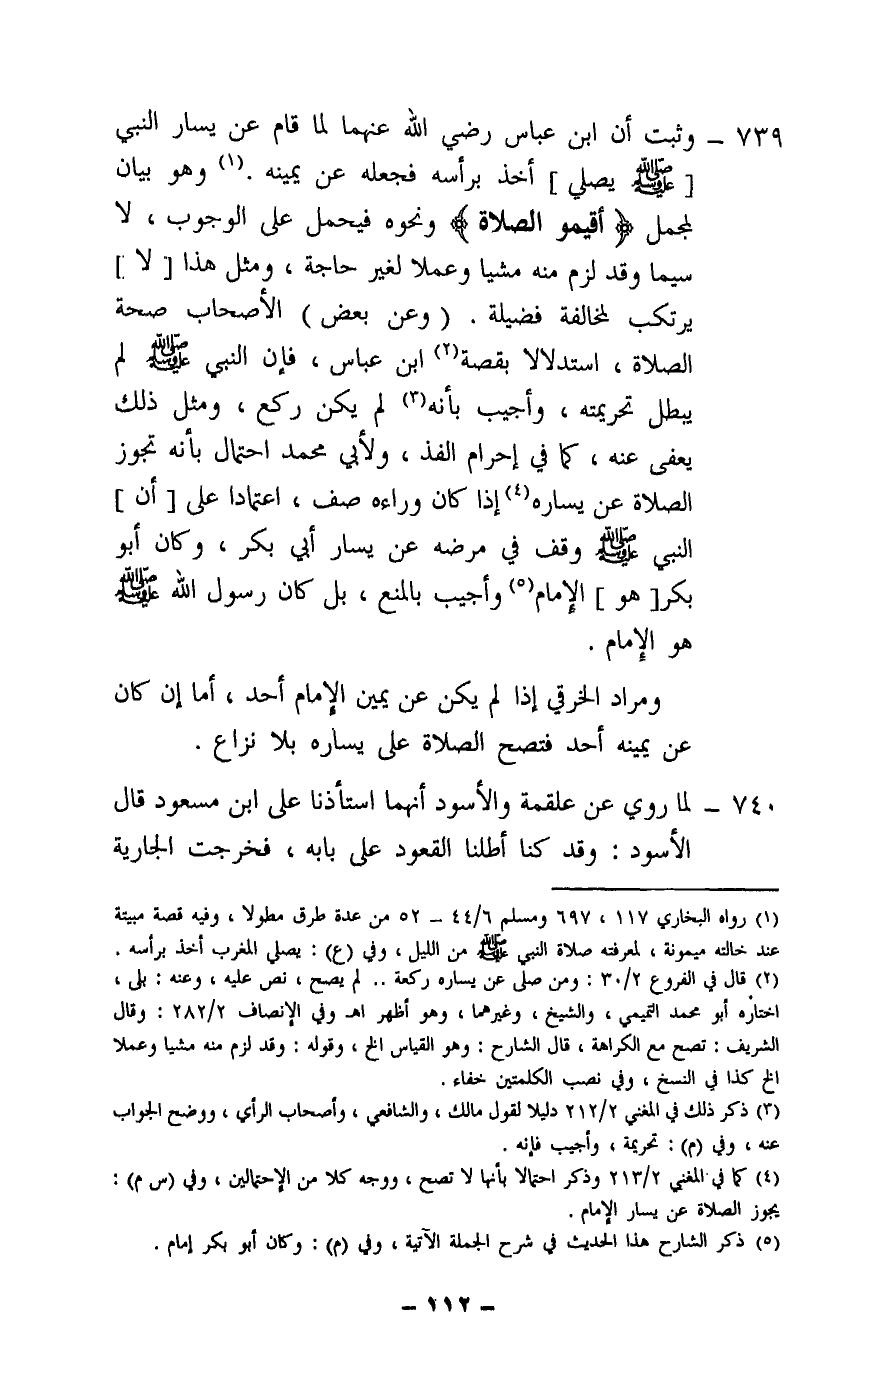 ٧٣٩ – وثبت أن ابن عباس رضي الله عنهما لما قام عن يسار النبي
[ ﷺ يصلي ] أخذ برأسه فجعله عن يمينه .(١) وهو بيان
لمجمل ﴿ أقيمو الصلاة ﴾ ونحوه فيحمل على الوجوب ، لا
سيما وقد لزم منه مشيا وعملا لغير حاجة ، ومثل هذا [ لا ]
يرتكب لمخالفة فضيلة . ( وعن بعض ) الأصحاب صحة
الصلاة ، استدلالا بقصة(٢) ابن عباس ، فإن النبي ﷺ لم
يبطل تحريمته ، وأجيب بأنه(٣) لم يكن ركع ، ومثل ذلك
يعفى عنه ، كما في إحرام الفذ ، ولأبي محمد احتمال بأنه تجوز
الصلاة عن يساره(٤) إذا كان وراءه صف ، اعتمادا على [ أن ]
النبي ﷺ وقف في مرضه عن يسار أبي بكر ، وكان أبو
بكر [ هو ] الإمام(٥) وأجيب بالمنع ، بل كان رسول الله ﷺ
هو الإمام .
ومراد الخرقي إذا لم يكن عن يمين الإمام أحد ، أما إن كان
عن يمينه أحد فتصح الصلاة على يساره بلا نزاع .
٧٤٠ – لما روي عن علقمة والأسود أنهما استأذنا على ابن مسعود قال
الأسود : وقد كنا أطلنا القعود على بابه ، فخرجت الجارية
(١) رواه البخاري ١١٧ ، ٦٩٧ ومسلم ٤٤/٦ – ٥٢ من عدة طرق مطولا ، وفيه قصة مبيتة
عند خالته ميمونة ، لمعرفته صلاة النبي ﷺ من الليل ، وفي (ع) : يصلي المغرب أخذ برأسه .
(٢) قال في الفروع ٣٠/٢ : ومن صلى عن يساره ركعة .. لم يصح ، نص عليه ، وعنه : بلى ،
اختاره أبو محمد التميمي ، والشيخ ، وغيرهما ، وهو أظهر اهـ وفي الإنصاف ٢٨٢/٢ : وقال
الشريف : تصح مع الكراهة ، قال الشارح : وهو القياس الخ ، وقوله : وقد لزم منه مشيا وعملا
الخ كذا في النسخ ، وفي نصب الكلمتين خفاء .
(٣) ذكر ذلك في المغني ٢١٢/٢ دليلا لقول مالك ، والشافعي ، وأصحاب الرأي ، ووضح الجواب
عنه ، وفي (م) : تحريمة ، وأجيب فإنه .
(٤) كما في المغني ٢١٣/٢ وذكر احتمالا بأنها لا تصح ، ووجه كلا من الإحتمالين ، وفي (س م) :
يجوز الصلاة عن يسار الإمام .
(٥) ذكر الشارح هذا الحديث في شرح الجملة الآتية ، وفي (م) : وكان أبو بكر إمام .
– ١١٢ –